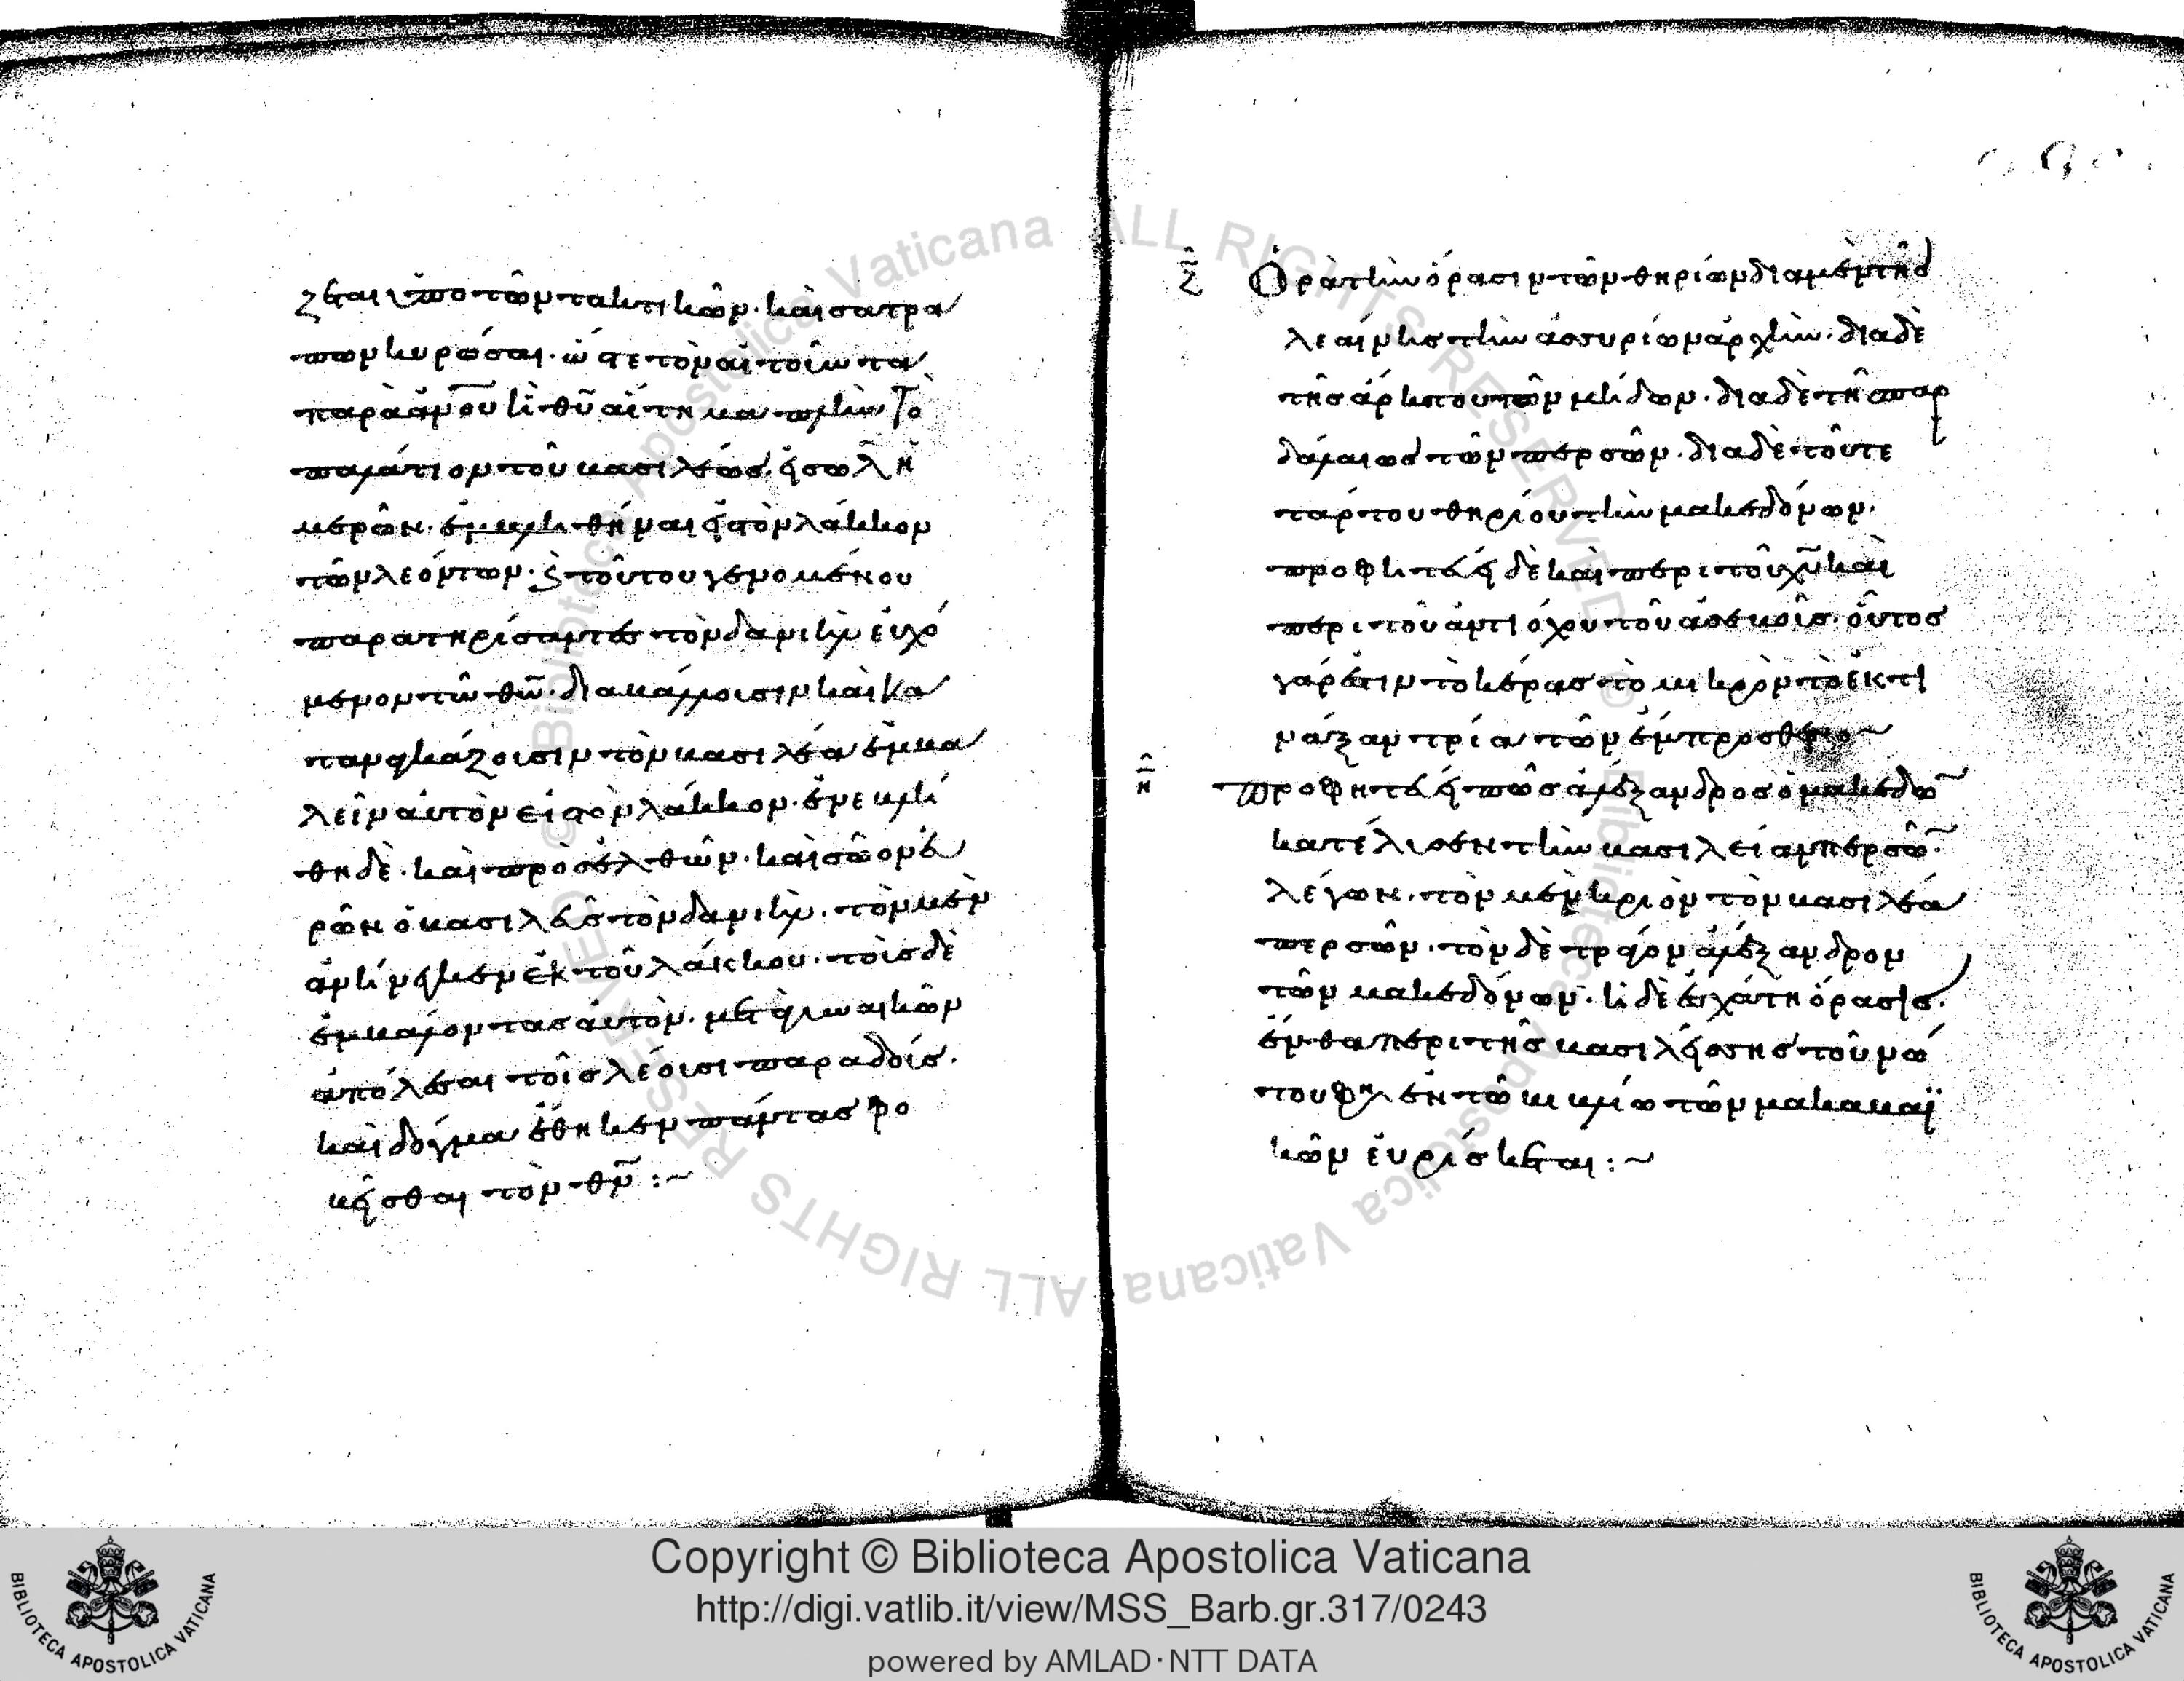 ζεται ὑπὸ τῶν τακτικῶν· καὶ σατρα
πῶν κυρῶσαι· ὥστε τὸν αἰτοῦντα
παρὰ ἀνου ἢ θυ αἴτημα πλὴν
παρὰ τοῦ βασιλέως, εἴσω λ
ἡμερῶν· ἐμβληθῆναι εἰς τὸν λάκκον
τῶν λεόντων· τούτου γενομένου
παρατηρήσαντες τὸν δανιὴλ εὐχό
μενον τῶ θω· διαβάλλουσιν καὶ κα
ταναγκάζουσιν τὸν βασιλέα ἐμβα
λεῖν αὐτὸν εἰς τὸν λάκκον· ἐνεβλή
θη δὲ· καὶ προσελθὼν· καὶ σῶον εὑ
ρὼν ὁ βασιλεὺς τὸν δανιὴλ· τὸν μὲν
ἀνήνεγκεν ἐκ τοῦ λάκκου· τοὺς δὲ
ἐμβαλόντας αὐτὸν· μετὰ γυναικῶν
ἀπόλεσαι τοῖς λέουσι παραδούς·
καὶ δόγμα ἔθηκεν πάντας φο
βεῖσθαι τὸν θν :~
ζ Ὁρᾶ τὴν ὅρασιν τῶν θηρίων διὰ μὲν τῆς
λεαίνης τὴν ἀσσυρίων ἀρχὴν· διὰ δὲ
τῆς ἄρκτου τῶν μήδων· διὰ δὲ τῆς παρ
δάλεως τῶν περσῶν· διὰ δὲ τοῦ τε
τάρτου θηρίου τὴν μακεδόνων·
προφητεύει δὲ καὶ περὶ τοῦ χυ καὶ
περὶ τοῦ ἀντιόχου τοῦ ἀσεβοῦς· οὗτος
γάρ ἐστιν τὸ κέρας τὸ μικρὸν τὸ ἐκτι
νάξαν τρία τῶν ἔμπροσθεν
η προφητεύει πῶς ἀλέξανδρος ὁ μακεδὼ
κατέλυσεν τὴν βασιλείαν περσῶν·
λέγων· τὸν μὲν κριὸν τὸν βασιλέα
περσῶν· τὸν δὲ τράγον ἀλέξανδρον
τῶν μακεδόνων· ἡ δὲ ἐσχάτη ὅρασις·
ἔνθα περὶ τῆς βασιλείσσης τοῦ νώ
του φη ἐν τῶ βιβλίω τῶν μακαβαϊ
κῶν εὑρίσκεται :~
Copyright © Biblioteca Apostolica Vaticana
http://digi.vatlib.it/view/MSS_Barb.gr.317/0243
powered by AMLAD·NTT DATA
BIBLIOTECA APOSTOLICA VATICANA
BIBLIOTECA APOSTOLICA VATICANA